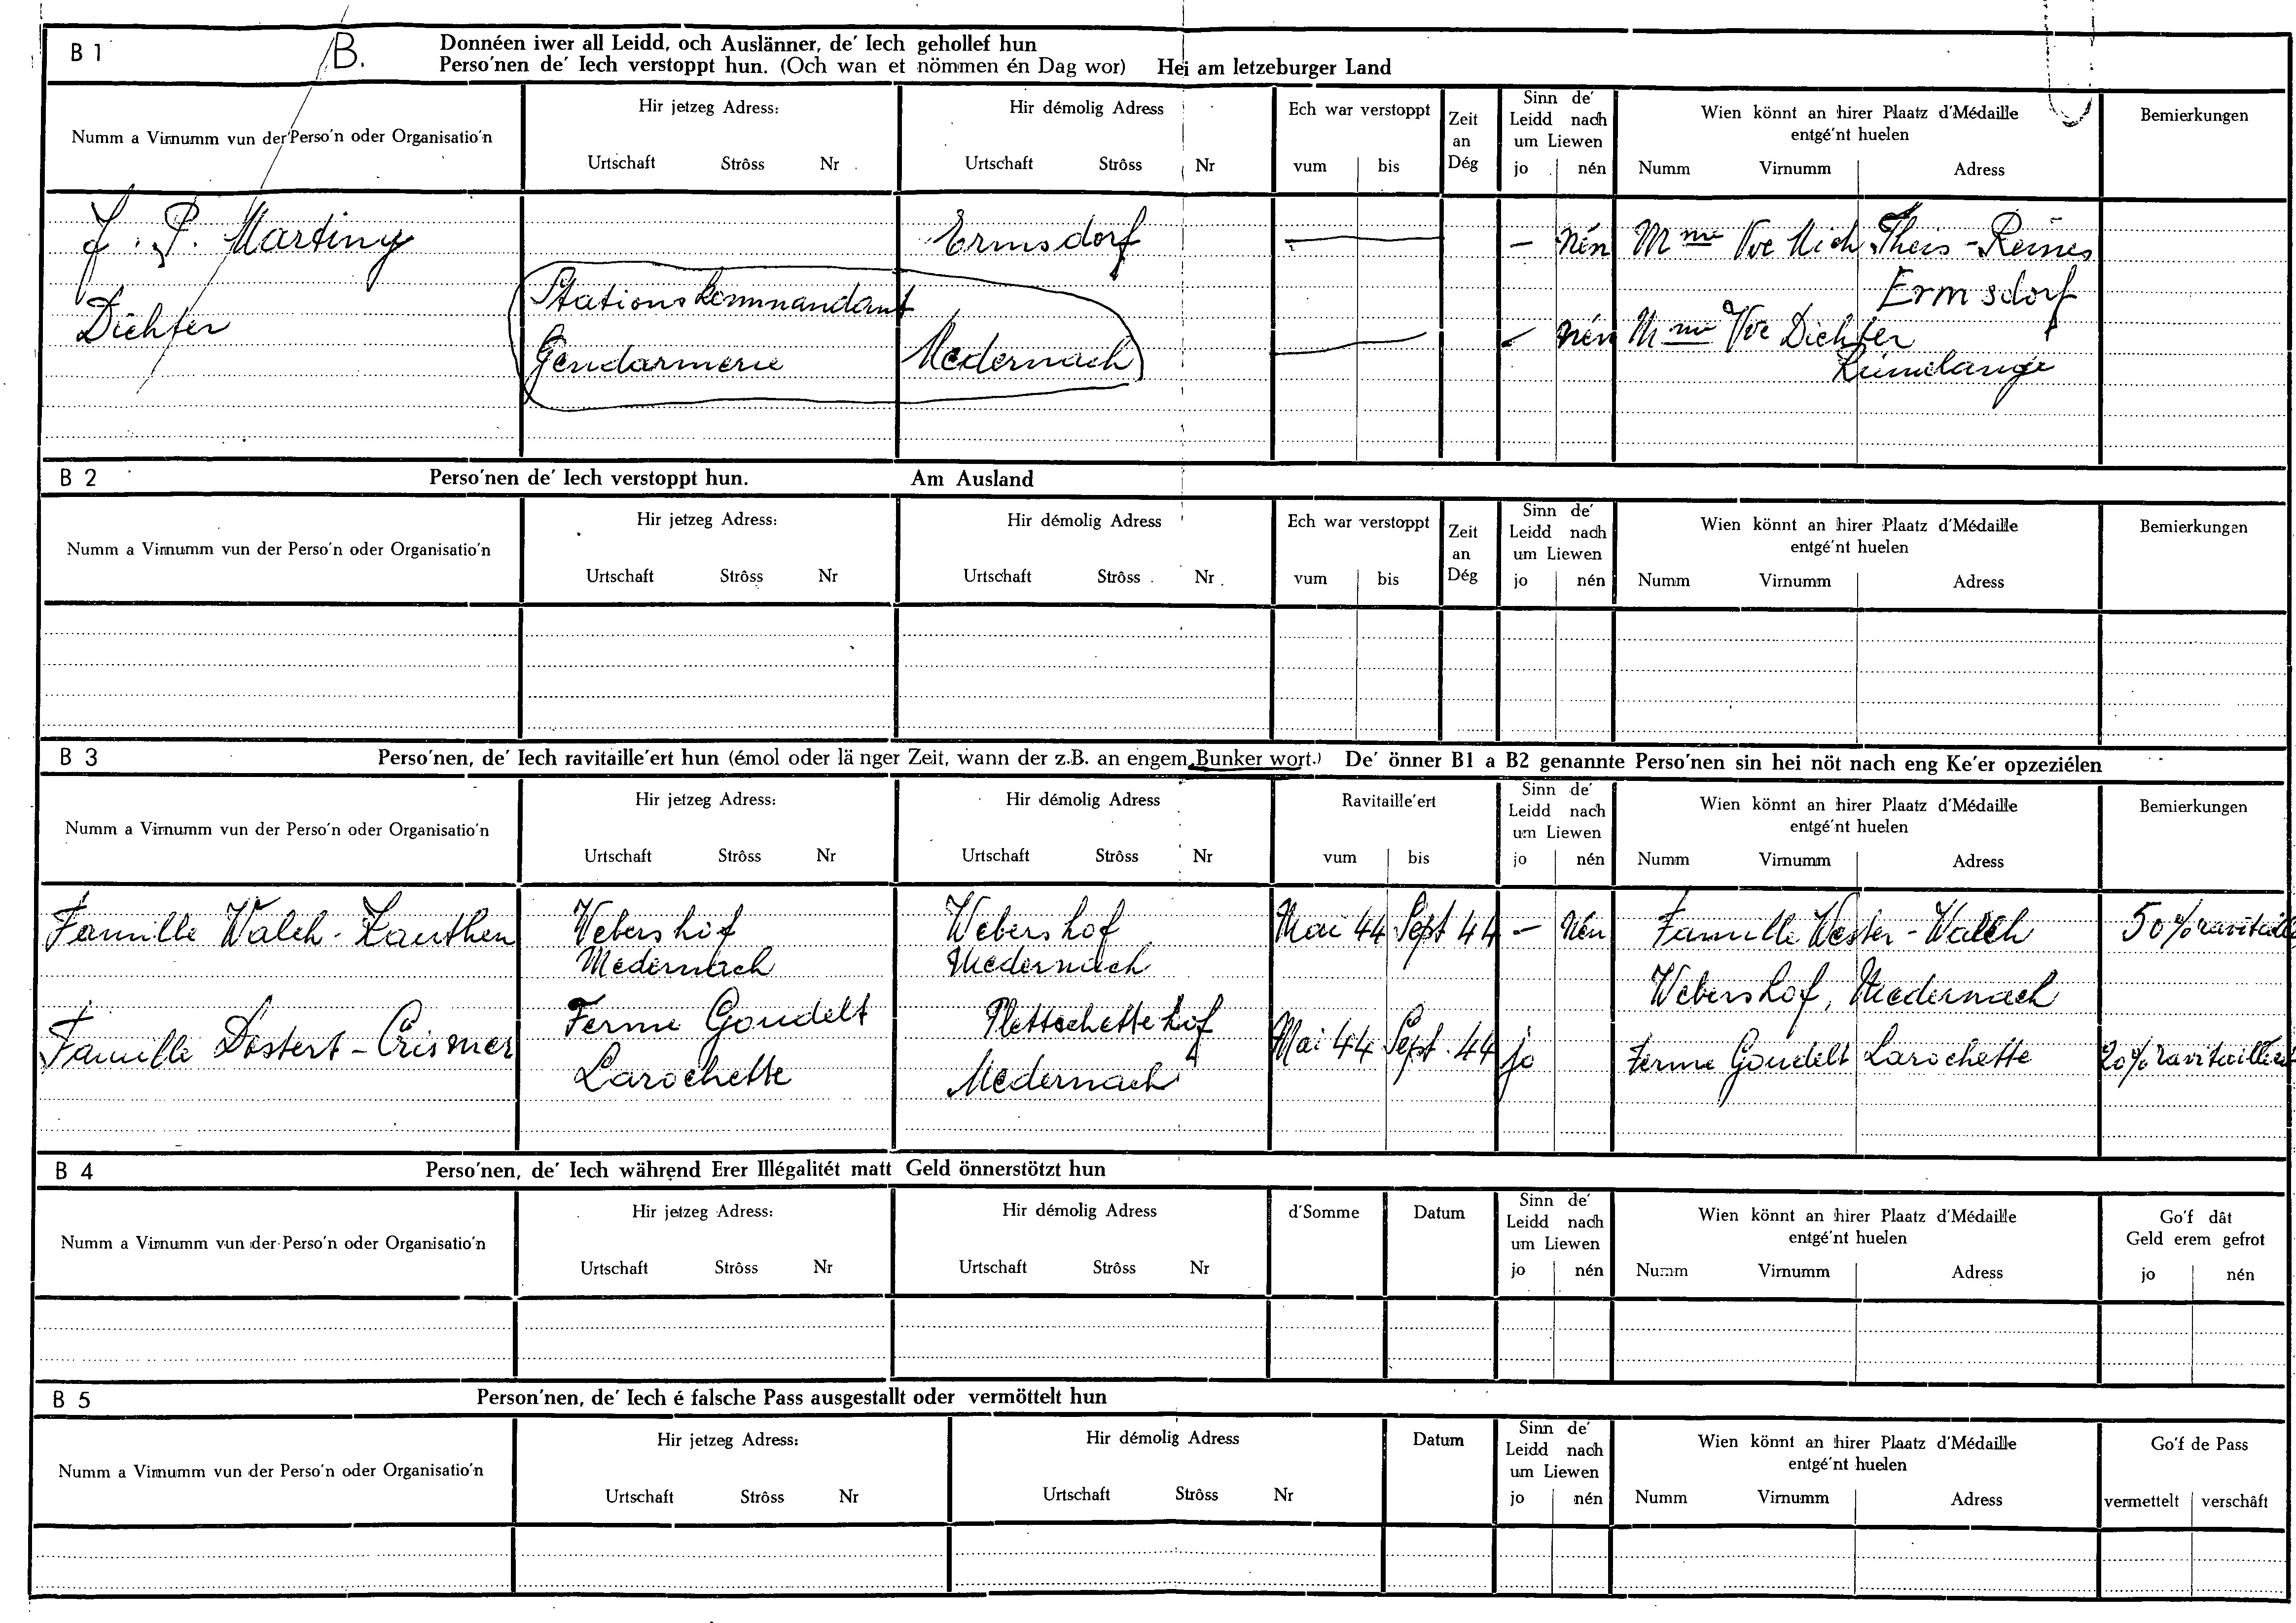 B 1 B. Donnéen iwer all Leidd, och Auslänner, de' Iech gehollef hun
Perso'nen de' Iech verstoppt hun. (Och wan et nömmen én Dag wor) Hei am letzeburger Land
Numm a Virnumm vun der Perso'n oder Organisatio'n
Hir jetzeg Adress:
Urtschaft Strôss Nr
Hir démolig Adress
Urtschaft Strôss Nr
Ech war verstoppt
vum bis
Zeit
an
Dég
Sinn de'
Leidd nach
um Liewen
jo nén
Wien könnt an hirer Plaatz d'Médaille
entgé'nt huelen
Numm Virnumm Adress
Bemierkungen
J. P. Martiny Ermsdorf — — nén Mme Vve Nich Theis - Reines
Ermsdorf
Dichter Stationskommandant
Gendarmerie Medernach — — nén Mme Vve Dichter
Rumelange
B 2 Perso'nen de' Iech verstoppt hun. Am Ausland
Numm a Virnumm vun der Perso'n oder Organisatio'n
Hir jetzeg Adress:
Urtschaft Strôss Nr
Hir démolig Adress
Urtschaft Strôss Nr
Ech war verstoppt
vum bis
Zeit
an
Dég
Sinn de'
Leidd nach
um Liewen
jo nén
Wien könnt an hirer Plaatz d'Médaille
entgé'nt huelen
Numm Virnumm Adress
Bemierkungen
B 3 Perso'nen, de' Iech ravitaille'ert hun (émol oder länger Zeit, wann der z.B. an engem Bunker wort.) De' önner B1 a B2 genannte Perso'nen sin hei nöt nach eng Ke'er opzeziélen
Numm a Virnumm vun der Perso'n oder Organisatio'n
Hir jetzeg Adress:
Urtschaft Strôss Nr
Hir démolig Adress
Urtschaft Strôss Nr
Ravitaille'ert
vum bis
Sinn de'
Leidd nach
um Liewen
jo nén
Wien könnt an hirer Plaatz d'Médaille
entgé'nt huelen
Numm Virnumm Adress
Bemierkungen
Famille Walch - Zanthen Webershof Webershof Mai 44 Sept 44 — nén Famille Wester - Walch 50%
Medernach Medernach Webershof, Medernach
Famille Dostert - Crismer Ferme Goudelt Plettschette hof Mai 44 Sept. 44 jo Ferme Goudelt Larochette 20%
Larochette Medernach
B 4 Perso'nen, de' Iech während Erer Illégalitét matt Geld önnerstötzt hun
Numm a Virnumm vun der Perso'n oder Organisatio'n
Hir jetzeg Adress:
Urtschaft Strôss Nr
Hir démolig Adress
Urtschaft Strôss Nr
d'Somme
Datum
Sinn de'
Leidd nach
um Liewen
jo nén
Wien könnt an hirer Plaatz d'Médaille
entgé'nt huelen
Numm Virnumm Adress
Go'f dât
Geld erem gefrot
jo nén
B 5 Person'nen, de' Iech é falsche Pass ausgestallt oder vermöttelt hun
Numm a Virnumm vun der Perso'n oder Organisatio'n
Hir jetzeg Adress:
Urtschaft Strôss Nr
Hir démolig Adress
Urtschaft Strôss Nr
Datum
Sinn de'
Leidd nach
um Liewen
jo nén
Wien könnt an hirer Plaatz d'Médaille
entgé'nt huelen
Numm Virnumm Adress
Go'f de Pass
vermettelt verschâft